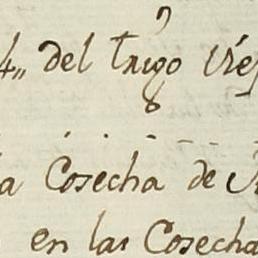 4,, del trigo
a Cosecha de
en las Cosecha